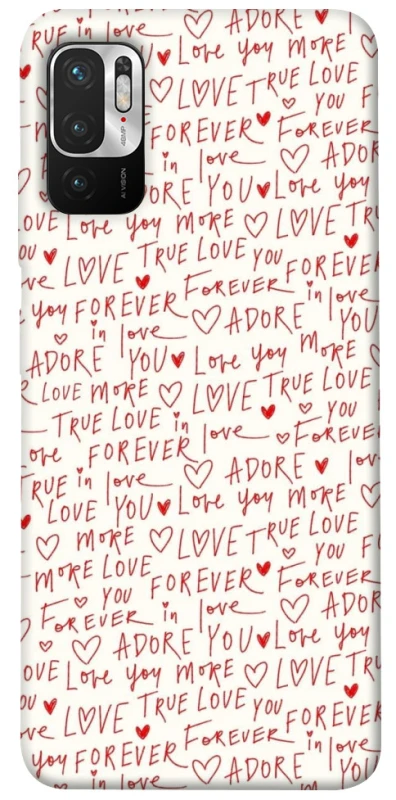 RUE in love ♥ ADORE
YOU ♥ Love you more
LOVE TRUE LOVE
♡ YOU F
48MP
FOREVER ♥ FOREVER
in love ♡ ADOR
AI VISION
ORE YOU ♥ Love you
OVE Love you moRE ♡ LOVE TRU
OU ♥ LOVE TRUE LOVE YOU FOREVER
ve ♥ FOREVER in love
you FOREVER ♡ ADORE YOU
♡ in love
ADORE YOU ♥ Love you moRE
LOVE moRE ♡ LOVE TRUE LOVE
TRUE LOVE in love ♥ ♡ YOU
ove FOREVER ♡ FOREVE
RUE in love ♡ ADORE ♥ lov
LOVE YOU ♥ Love you moRE
♡ moRE ♡ LOVE TRUE LOVE
moRE LOVE ♡ YOU F
YOU FOREVER ♥ FOREVER
FOREVER in love ♡ ADOR
♡ ADORE YOU ♥ Love you
OVE Love you moRE ♡ LOVE TRU
OU ♥ LOVE TRUE LOVE YOU FOREVER
ve ♥ FOREVER in love
you FOREVER ♡ ADORE YOU
in love